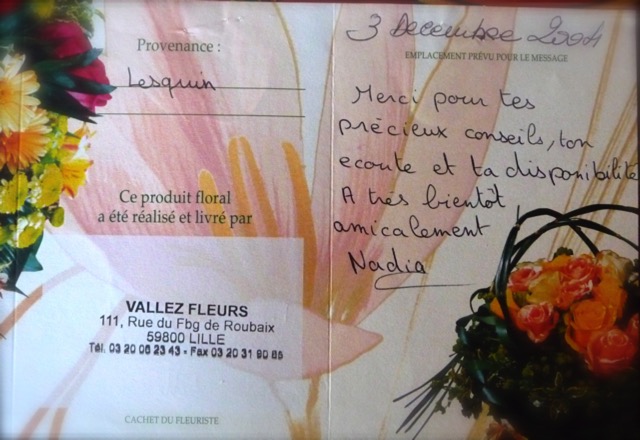 Provenance :
Lesquin
Ce produit floral
a été réalisé et livré par
VALLEZ FLEURS
111, Rue du Fbg de Roubaix
59800 LILLE
Tél. 03 20 06 23 43 - Fax 03 20 31 90 85
CACHET DU FLEURISTE
3 Decembre 2004
EMPLACEMENT PRÉVU POUR LE MESSAGE
Merci pour tes
précieux conseils, ton
ecoute et ta disponibilité
A très bientôt,
amicalement
Nadia